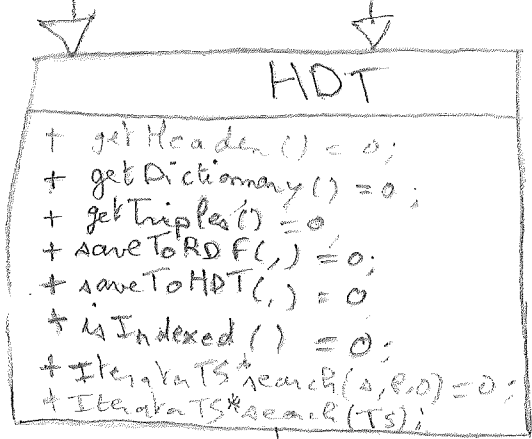 HDT
+ getHeader() = 0;
+ getDictionnary() = 0;
+ getTriples() = 0
+ saveToRDF(,) = 0;
+ saveToHDT(,) = 0
+ isIndexed() = 0;
+ IteratorTS*search(s,p,o) = 0;
+ IteratorTS*search(TS);